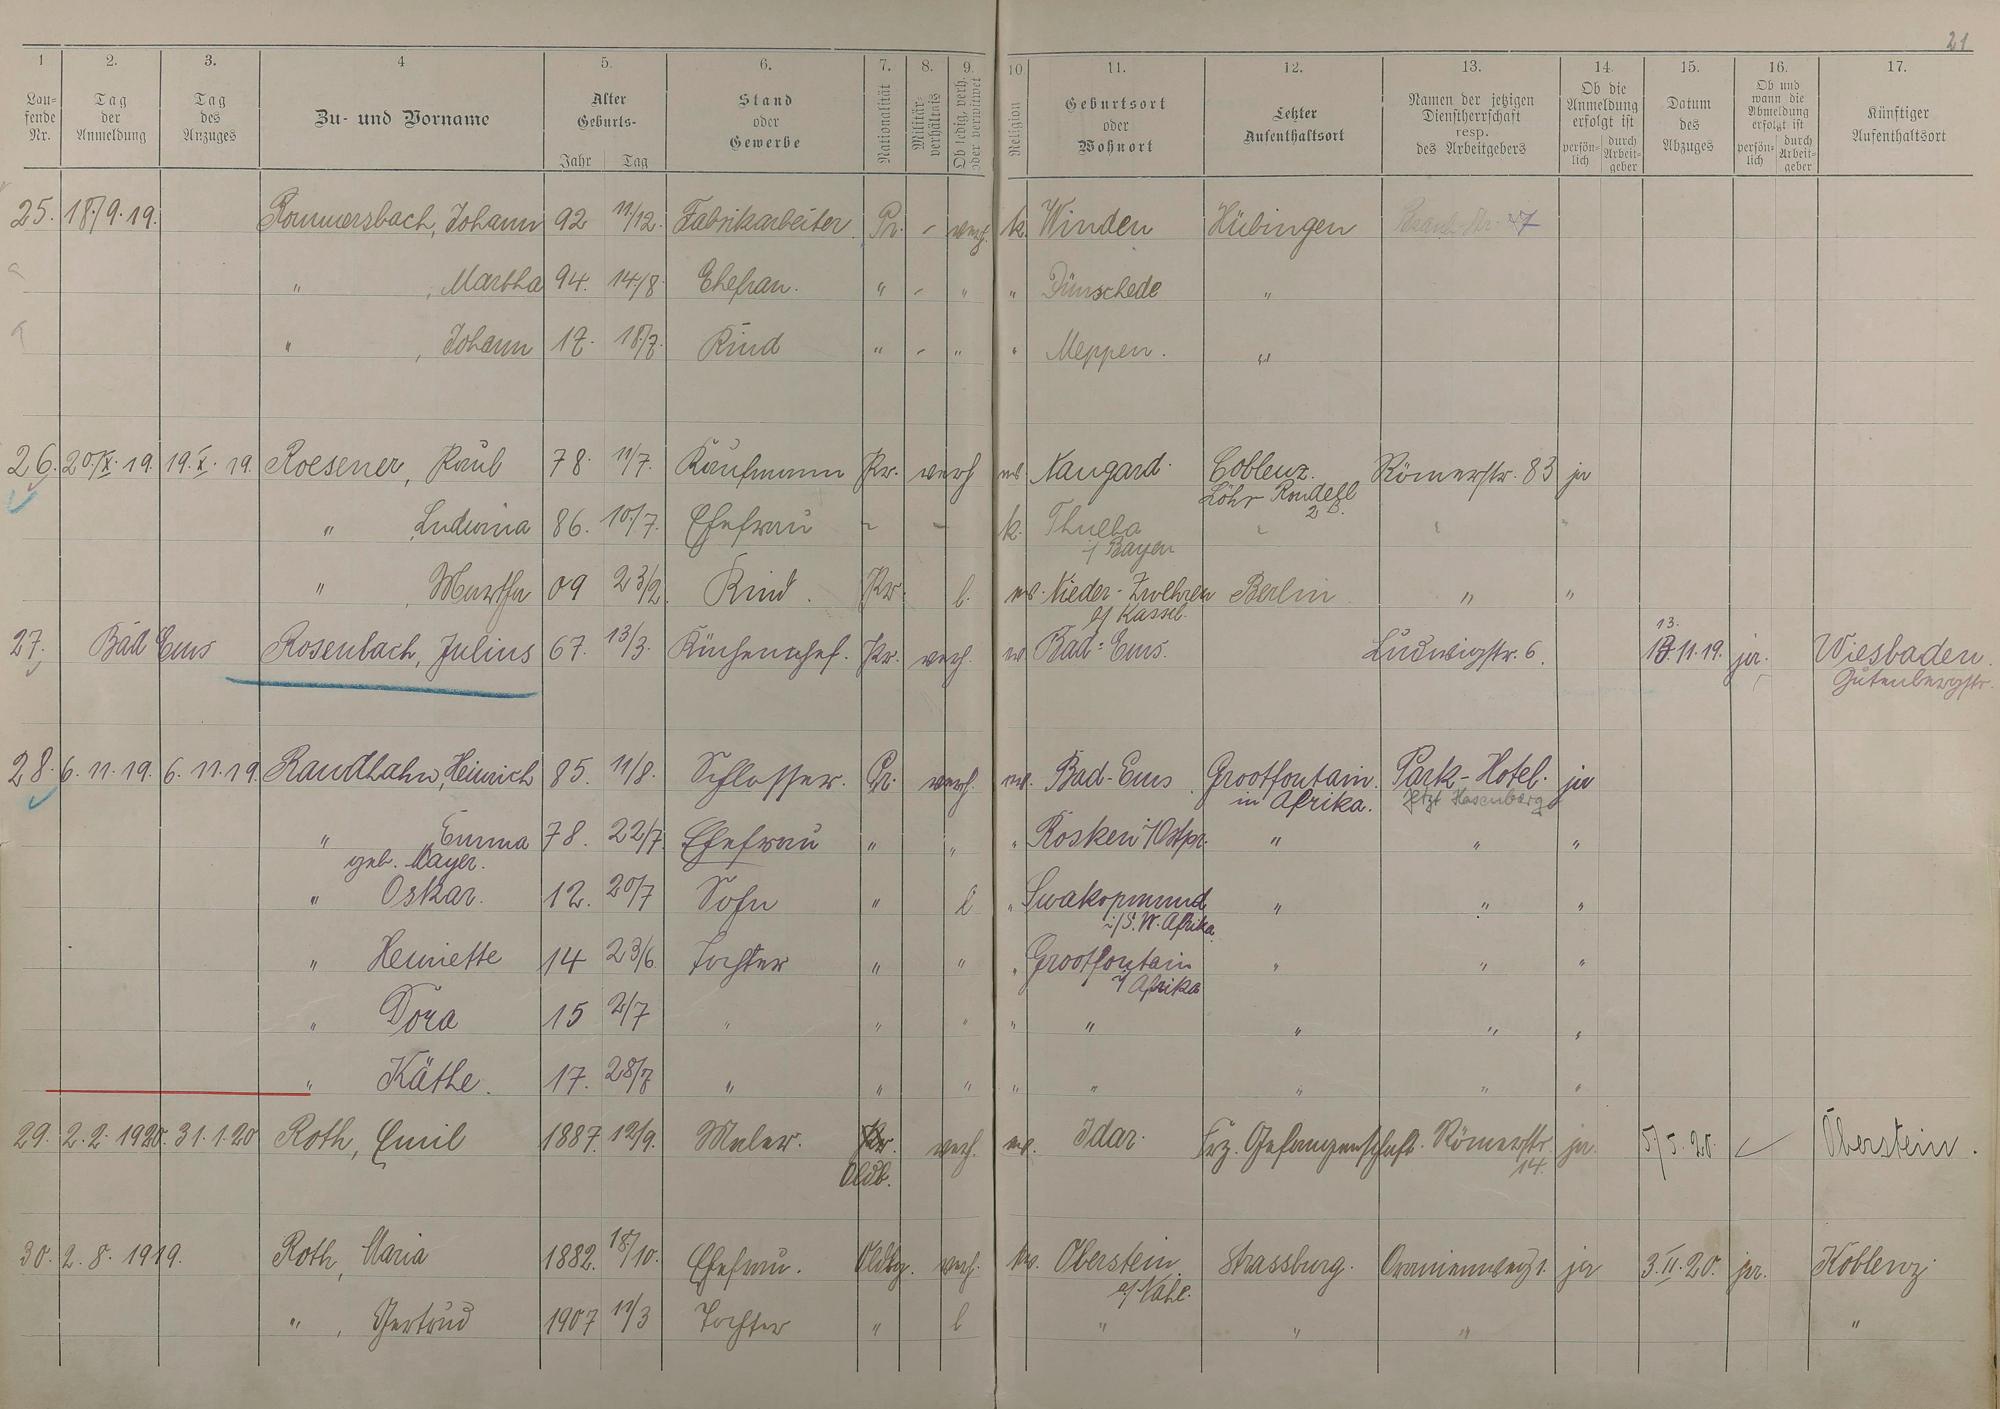 21
1 2. 3. 4 5. 6. 7. 8. 9. 10 11. 12. 13. 14. 15. 16. 17.
Lau-
fende
Nr.
Tag
der
Anmeldung
Tag
des
Anzuges
Zu- und Vorname
Alter
Geburts-
Jahr Tag
Stand
oder
Gewerbe
Nationalität
Militär-
verhältnis
Ob ledig, verh.
oder verwitwet
Religion
Geburtsort
oder
Wohnort
Letzter
Aufenthaltsort
Namen der jetzigen
Dienstherrschaft
resp.
des Arbeitgebers
Ob die
Anmeldung
erfolgt ist
persön-
lich
durch
Arbeit-
geber
Datum
des
Abzuges
Ob und
wann die
Abmeldung
erfolgt ist
persön-
lich
durch
Arbeit-
geber
Künftiger
Aufenthaltsort
25. 18./9. 19. Rommersbach, Johann 92 11/12. Fabrikarbeiter Pr. - verh. k. Winden Hübingen
" , Martha 94. 14./8 Ehefrau. " - " " Dünschede "
" , Johann 17. 18./7. Kind " - " " Meppen. "
26. 20./X. 19. 19. X. 19. Roesener, Paul 78. 11/7. Kaufmann Pr. verh ev. Naugard. Coblenz. Römerstr. 83 ja
Löhr Rondell
2 B.
" , Ludwina 86. 10./7. Ehefrau k. Thulba
i/ Bayern
" , Martha 09 23/2. Kind. Pr. l. ev. Nieder-Zwehren Berlin " "
b/ Kassel.
27. Bad Ems Rosenbach, Julius 67. 13/3. Küchenchef. Pr. verh. ev. Bad-Ems. Ludwigstr. 6. 13. 11. 19. ja. Wiesbaden.
13.
Gutenbergstr.
28. 6. 11. 19. 6. 11. 19. Randhahn, Heinrich 85. 11/8. Schlosser. Pr. verh. ev. Bad-Ems Grootfontain Park-Hotel. ja
in Afrika. jetzt Hasenberg
" Emma 78. 22/7. Ehefrau " " " Rosken /Ostpr. " " "
geb. Mayer.
" Oskar. 12. 20/7 Sohn " l " Swakopmund " " "
i/S. W. Afrika.
" Henriette 14 23/6. Tochter " " " Grootfontain " " "
i/ Afrika
" Dora 15 2/7 " " " " " " " "
" Käthe. 17. 28/7 " " " " " " " "
29. 2. 2. 1920. 31. 1. 20 Roth, Emil 1887. 12/9. Maler. Pr. verh. ev. Idar. Frz. Gefangenschaft. Römerstr. ja. 5/5. 20. Oberstein.
Oldb. 14.
30. 2. 8. 1919. Roth, Maria 1882. 18/10. Ehefrau. Oldbg. verh. ev. Oberstein Strassburg. Oranienweg 1. ja 3. II. 20. ja. Koblenz.
a/ Nahe.
" , Gertrud 1907 11/3 Tochter " l " " " "